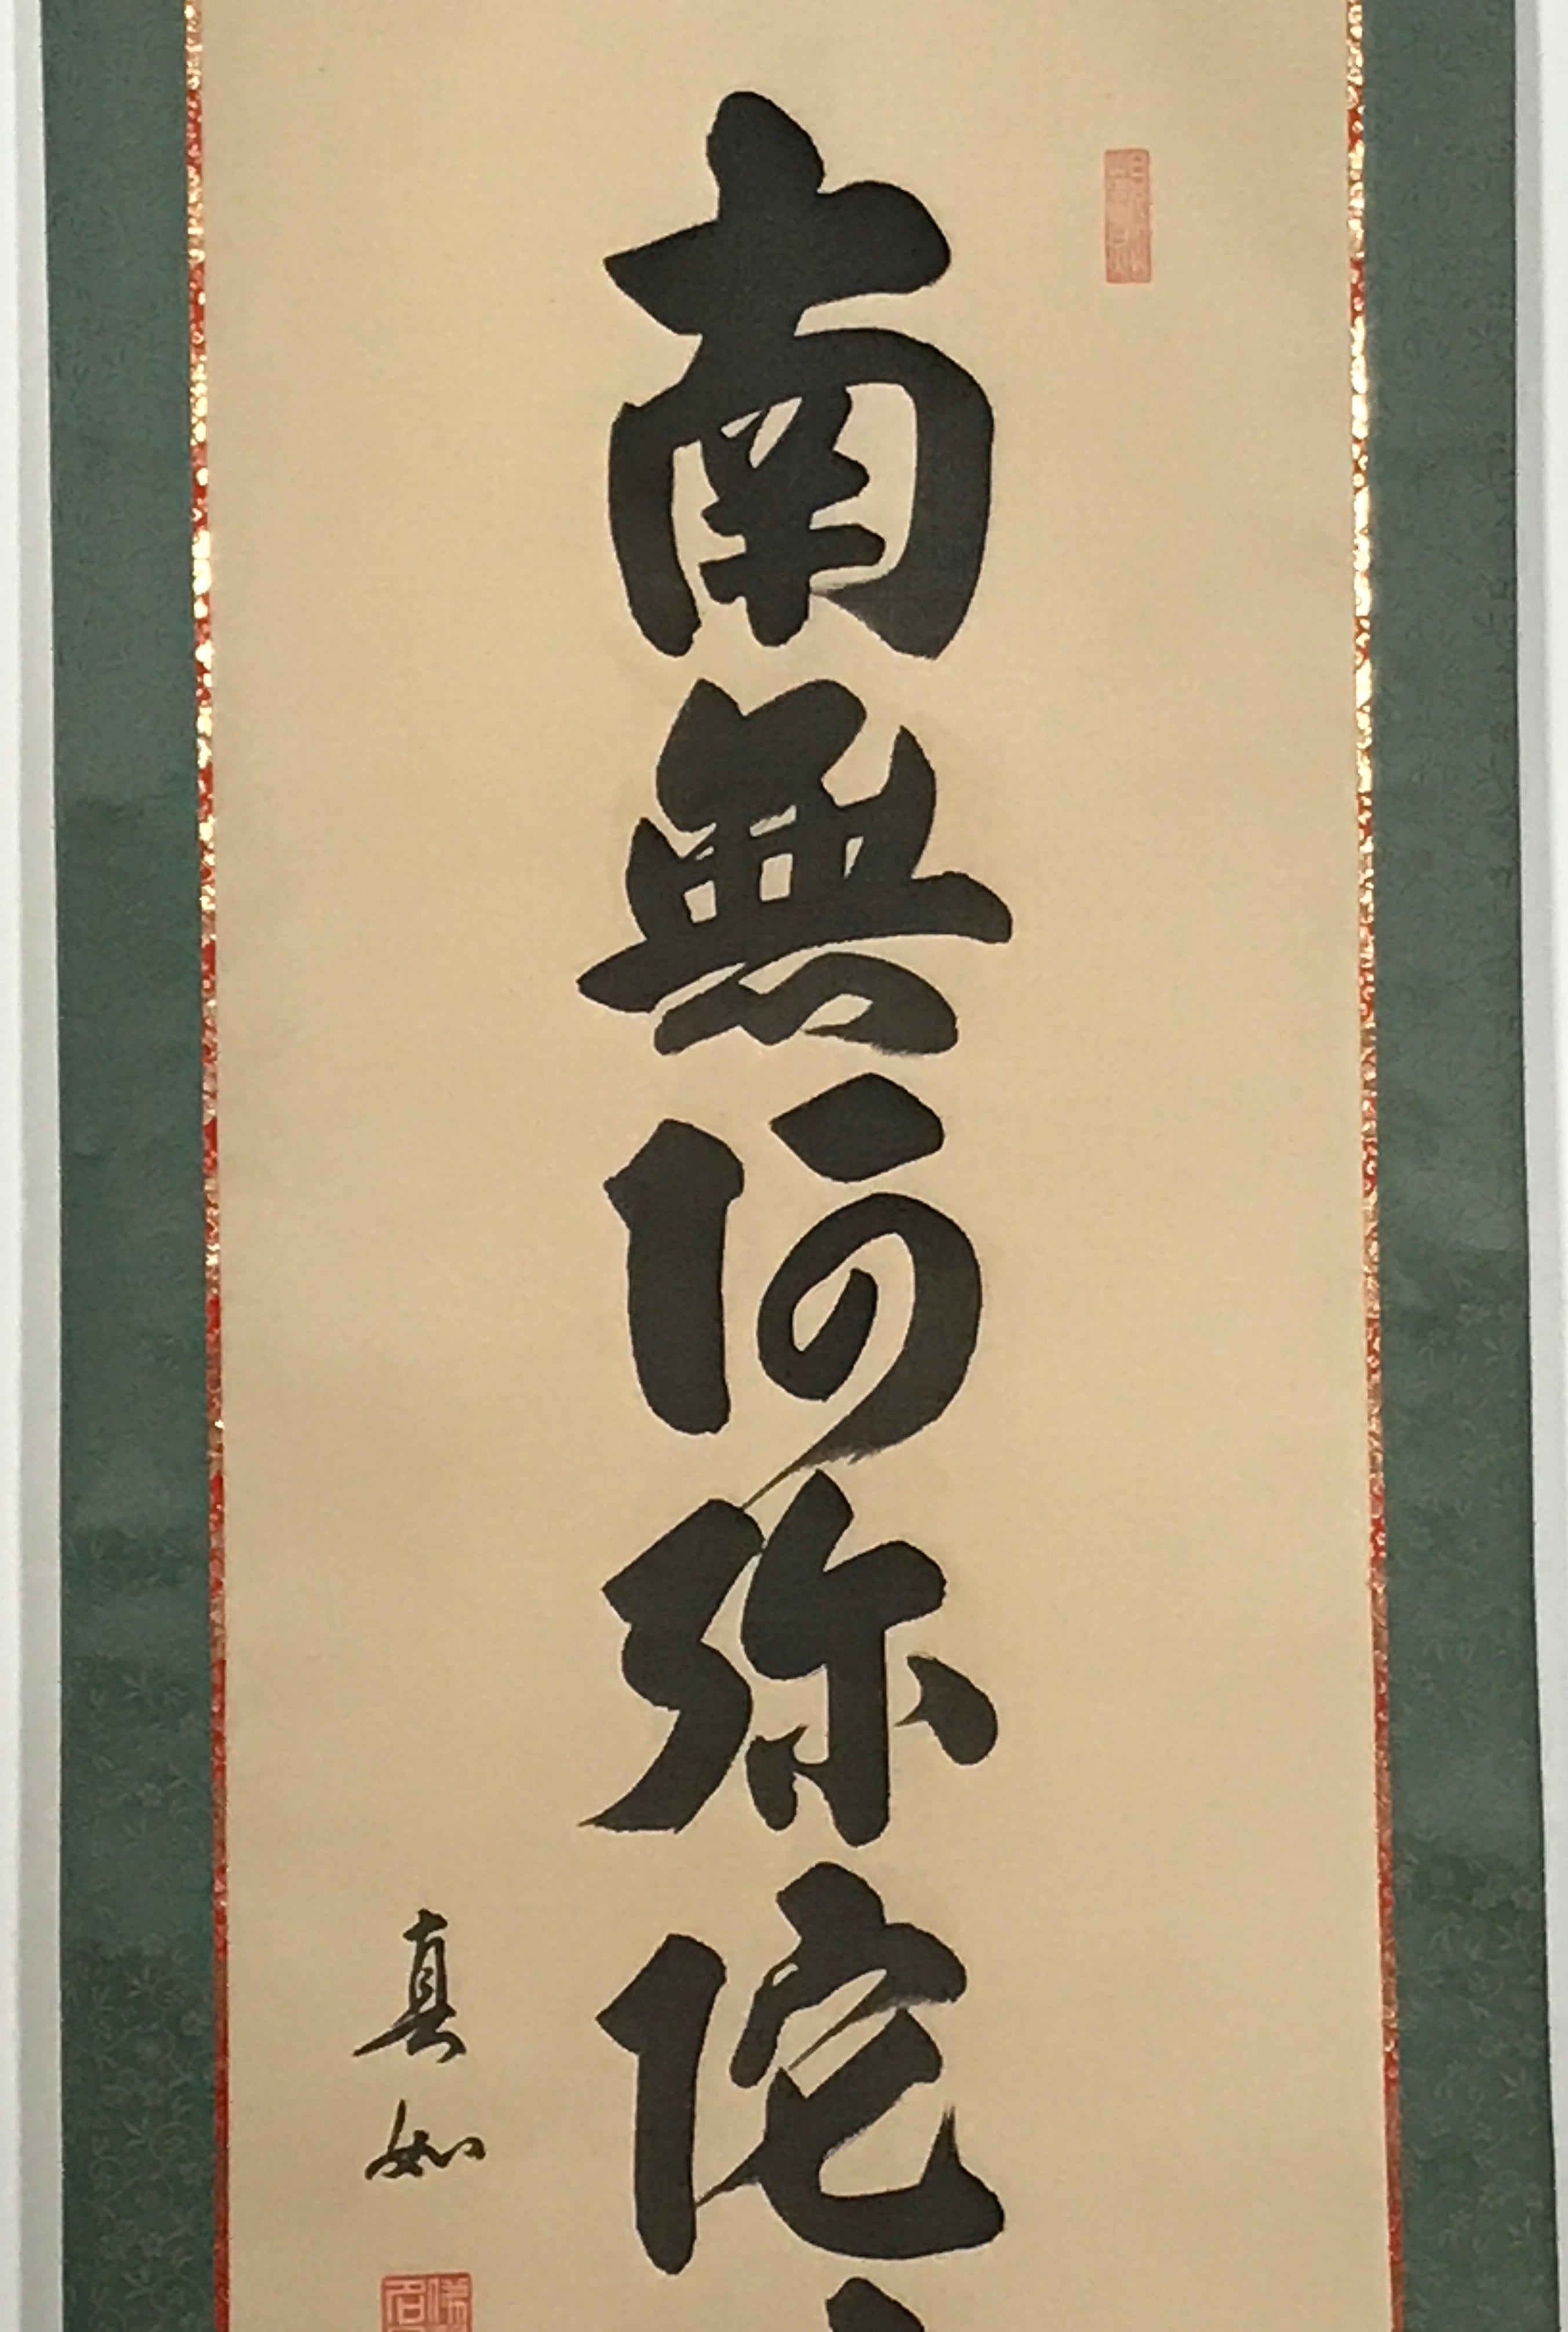 南無阿弥陀
真如